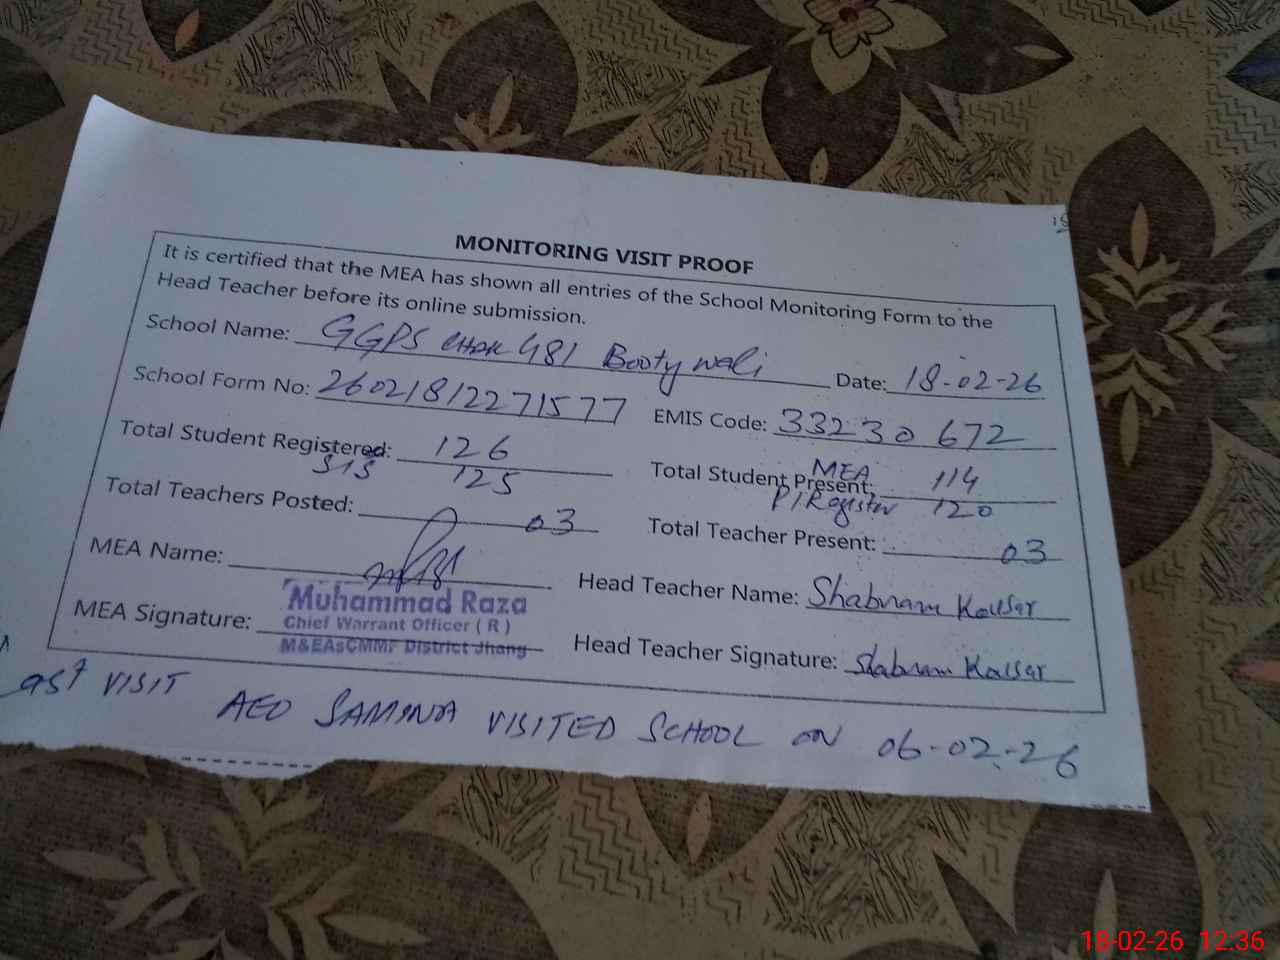 MONITORING VISIT PROOF
It is certified that the MEA has shown all entries of the School Monitoring Form to the
Head Teacher before its online submission.
School Name: GGPS CHAK 481 Booty wali Date: 18-02-26
School Form No: 26021812271577 EMIS Code: 33230672
Total Student Registered: 126 Total Student Present: MEA 114
SIS 125 P/Register 120
Total Teachers Posted: 03 Total Teacher Present: 03
MEA Name: Head Teacher Name: Shabnam Kousar
Muhammad Raza
Chief Warrant Officer ( R )
MEA Signature: M&EAsCMMF District Jhang Head Teacher Signature: Shabnam Kousar
ast VISIT AEO SAMINA VISITED SCHOOL ON 06-02-26
18-02-26 12:36